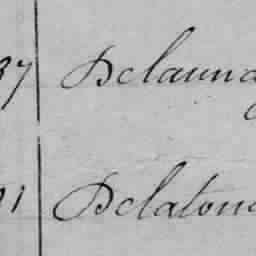 37 Delauna
91 Delatou